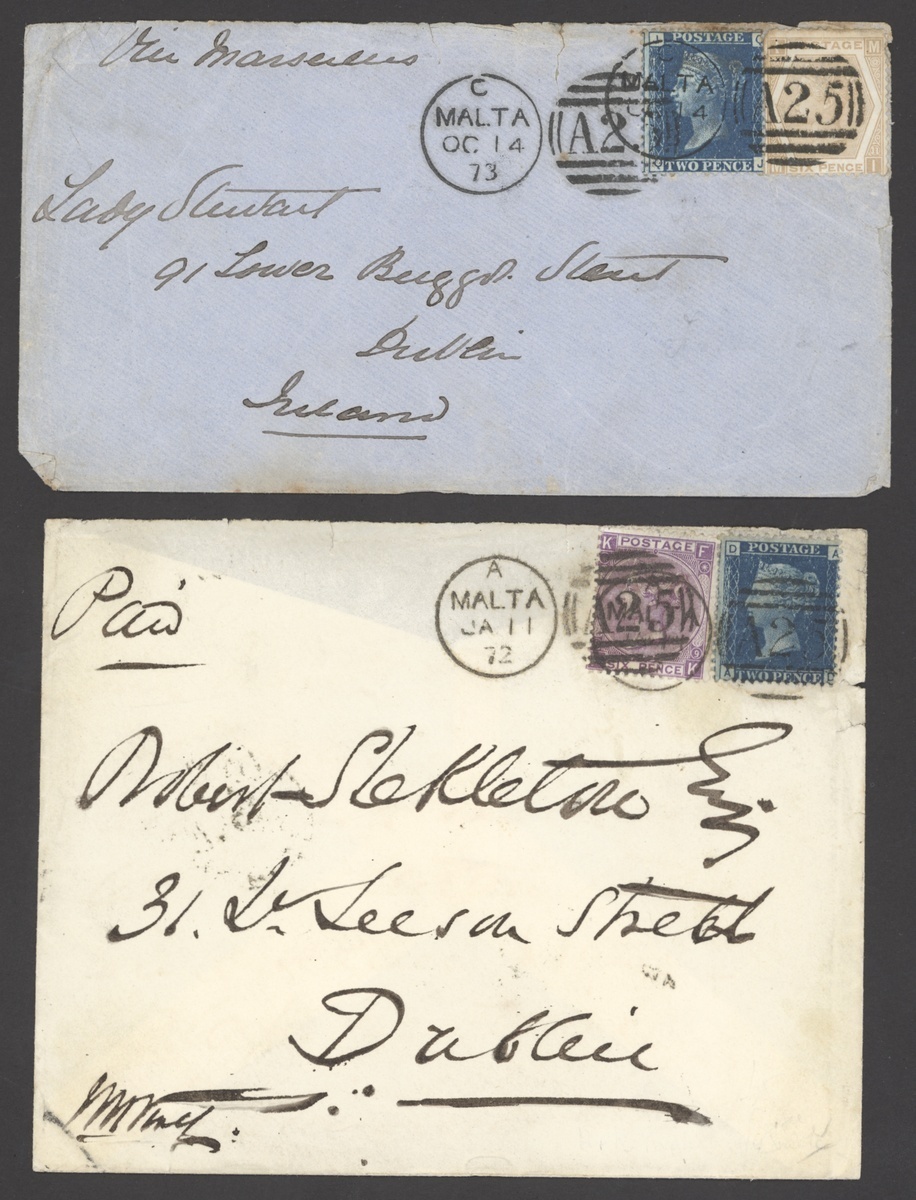 Via Marseilles
C
MALTA
OC 14
73
A25
POSTAGE
TWO PENCE
C
MALTA
14
POSTAGE
SIX PENCE
A25
Lady Stewart
91 Lower Baggot Street
Dublin
Ireland
Paid
A
MALTA
JA 11
72
K POSTAGE F
A25
MALTA
SIX PENCE K
D POSTAGE A
A25
TWO PENCE
Robert Stekleton Esq
31. Lr. Leeson Street
Dublin